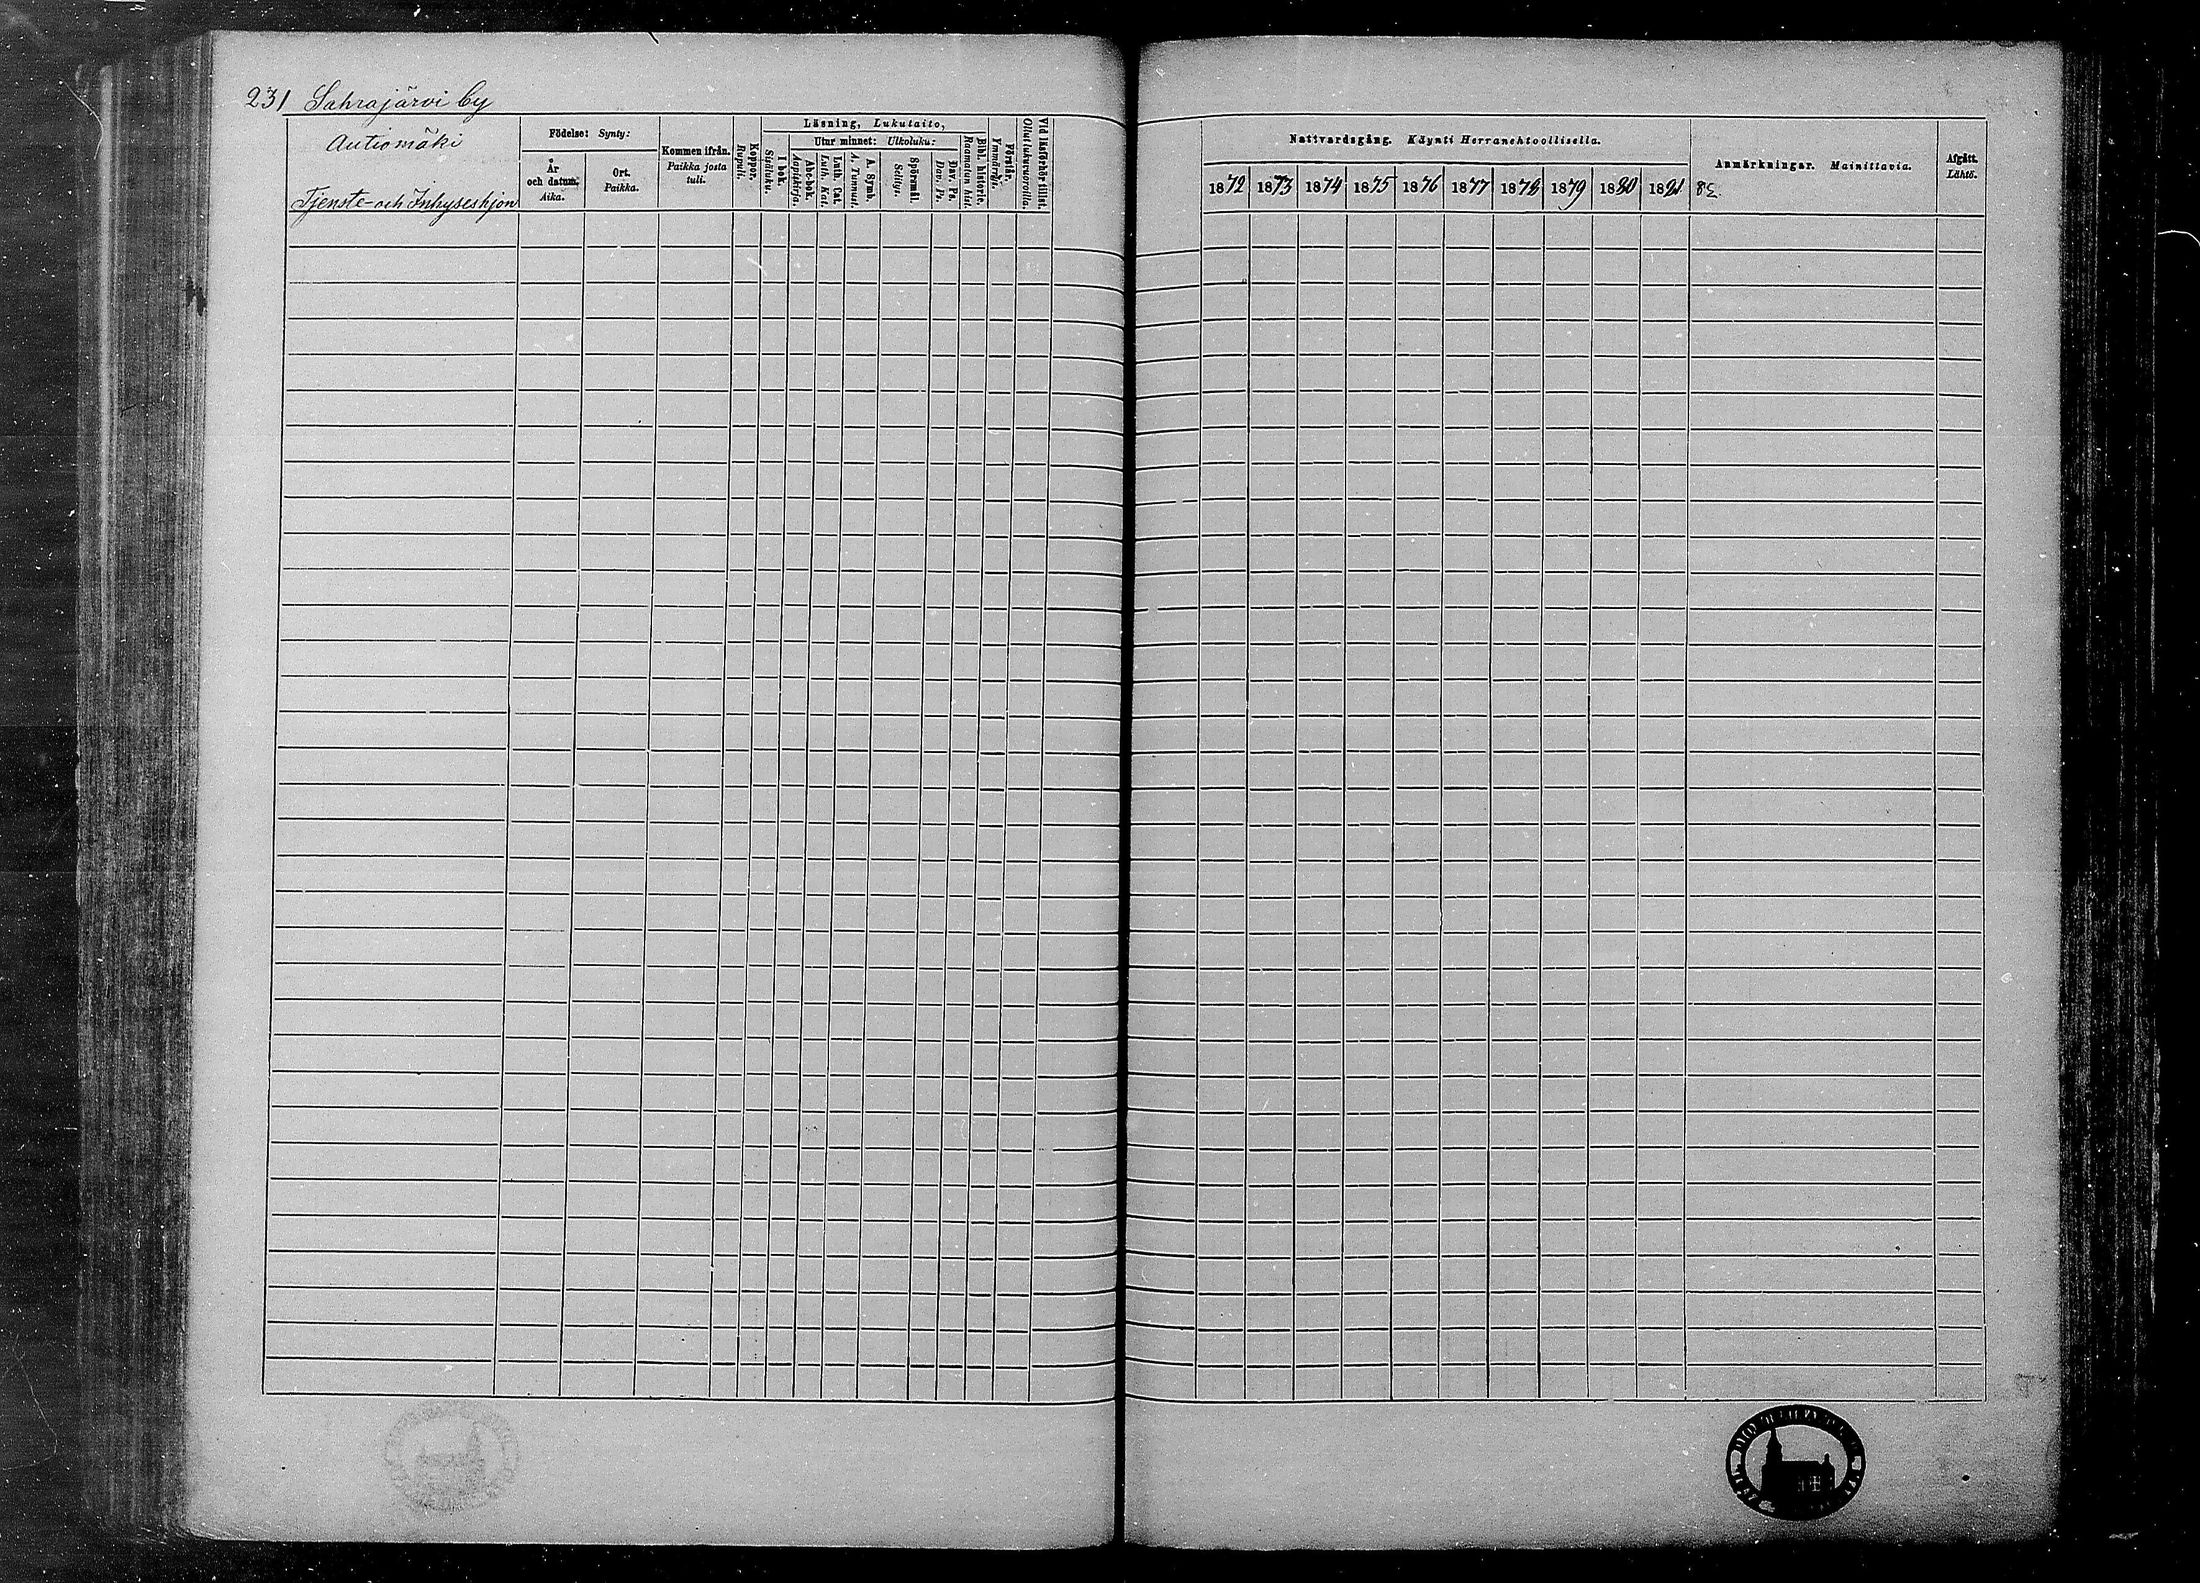 231 Sahrajärvi by
Autiomäki
Tjenste- och Inhyseshjon
Födelse: Synty:
År och datum. Aika.
Ort. Paikka.
Kommen ifrån. Paikka josta tuli.
Koppor. Rupuli.
Läsning, Lukutaito,
I bok. Sisäluku.
Utur minnet: Ulkoluku:
Abc-bok. Aapiskirja.
Luth. Cat. Luth. Kat.
A. Symb. A. Tunnust.
Spörsmål. Selitys.
Dav. Ps. Dav. Ps.
Bibl. historie. Raamatun hist.
Förstår. Ymmärrys.
Vid läsförhör tillst. Ollut lukuvuorolla.
Nattvardsgång. Käynti Herranehtoollisella.
1872 1873 1874 1875 1876 1877 1878 1879 1880 1881
Anmärkningar. Mainittavia.
Afgått. Lähtö.